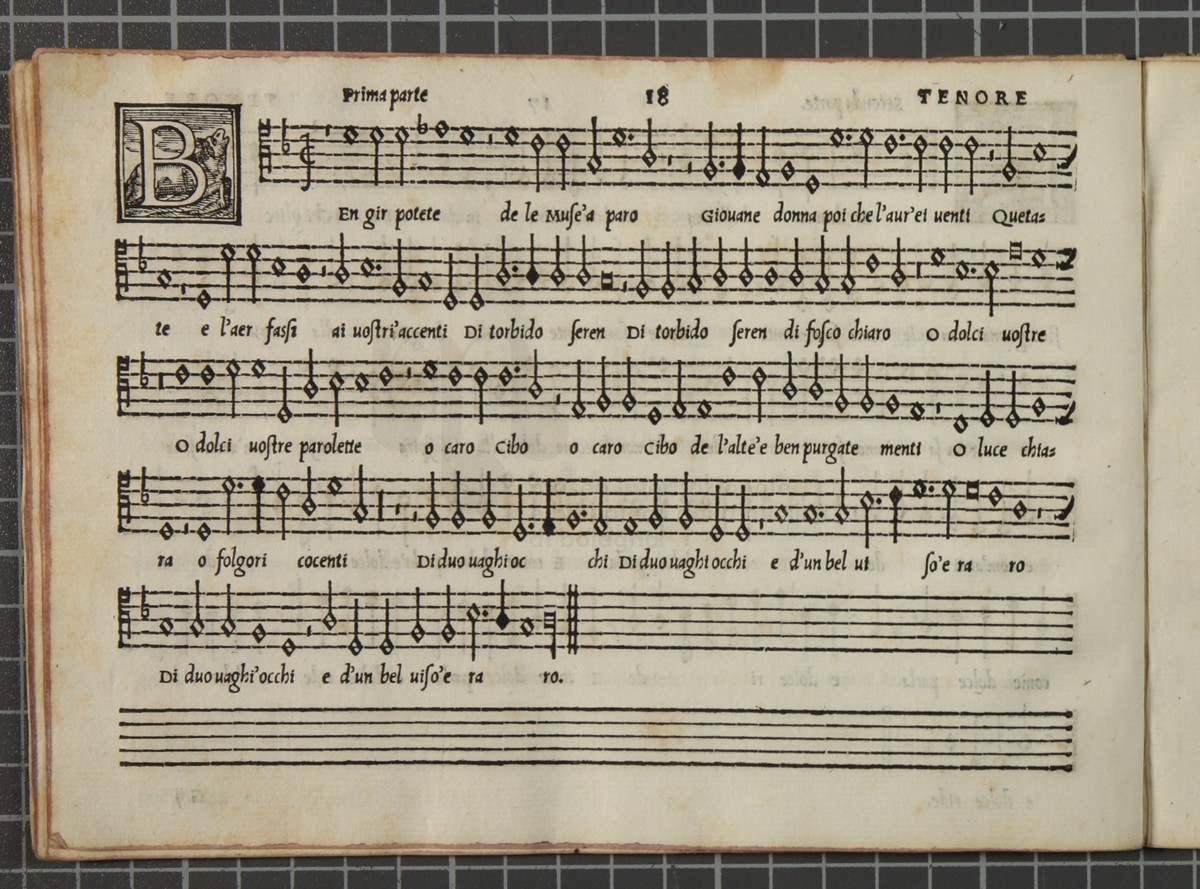 Prima parte 18 TENORE
B En gir potete de le Muse'a paro Giouane donna poi che l'aur'ei uenti Queta=
te e l'aer fassi ai uostri'accenti Di torbido seren Di torbido seren di fosco chiaro O dolci uostre
O dolci uostre parolette o caro Cibo o caro Cibo de l'alte'e ben purgate menti O luce chia=
ra o folgori cocenti Di duo uaghi oc chi Di duo uaghi occhi e d'un bel ui so'e ra ro
Di duo uaghi'occhi e d'un bel uiso'e ra ro.